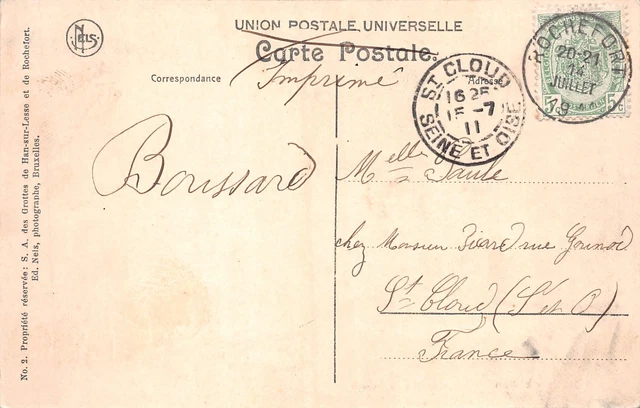 NELS
UNION POSTALE UNIVERSELLE
Carte Postale.
Correspondance
Adresse
Imprimé
ROCHEFORT
20-21
14
JUILLET
19
5c 5c
ST CLOUD
16 25
15 -7
11
SEINE ET OISE
Boussard
Melle Paule
chez Monsieur rue
St Cloud (S et O)
France
No. 2. Propriété réservée: S. A. des Grottes de Han-sur-Lesse et de Rochefort.
Ed. Nels, photographe, Bruxelles.